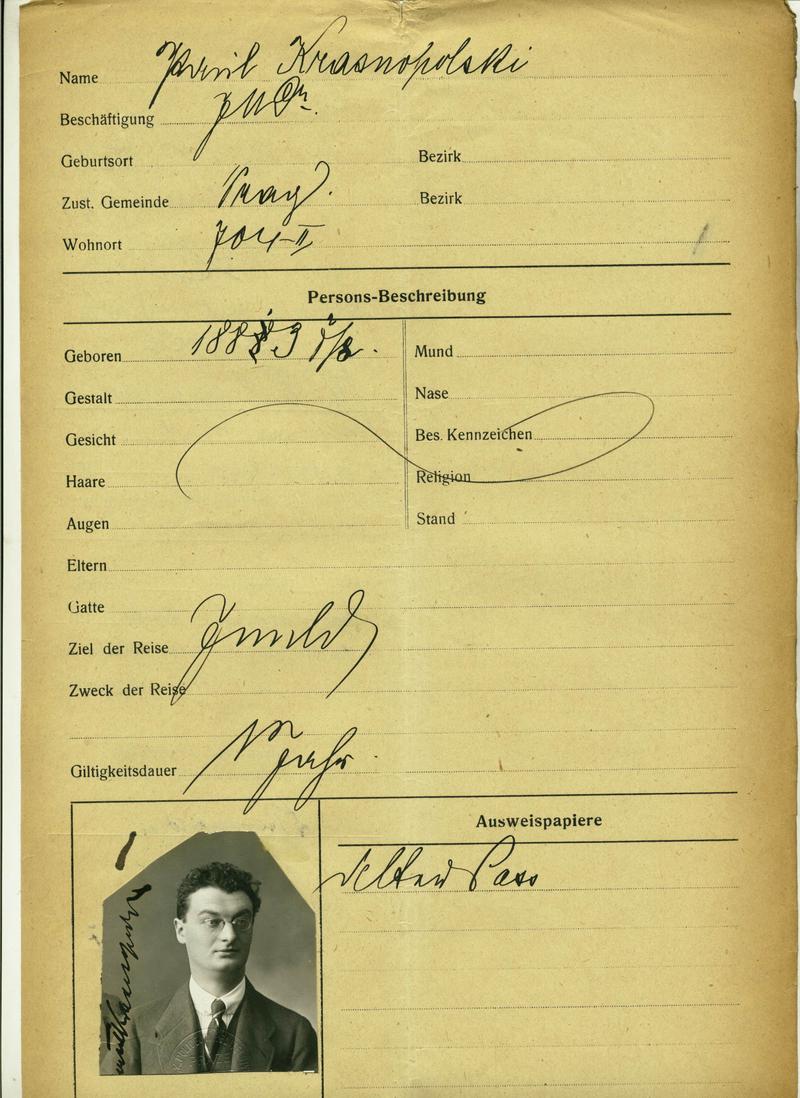 Name Krasnopolski
Beschäftigung JUDr.
Geburtsort Bezirk
Zust. Gemeinde Prag. Bezirk
Wohnort 704-II
Persons-Beschreibung
Geboren Mund
Gestalt Nase
Gesicht Bes. Kennzeichen
Haare Religion
Augen Stand
Eltern
Gatte
Ziel der Reise
Zweck der Reise
Giltigkeitsdauer Jahr
Ausweispapiere
Alter Pass